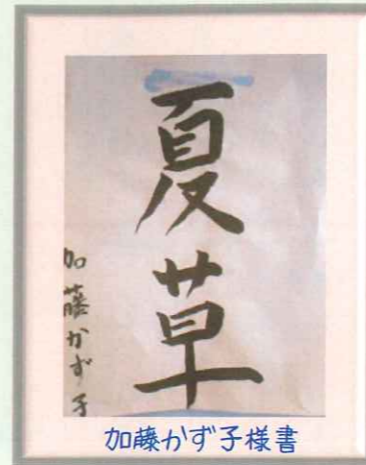 夏草
加藤かず子
加藤かず子様書